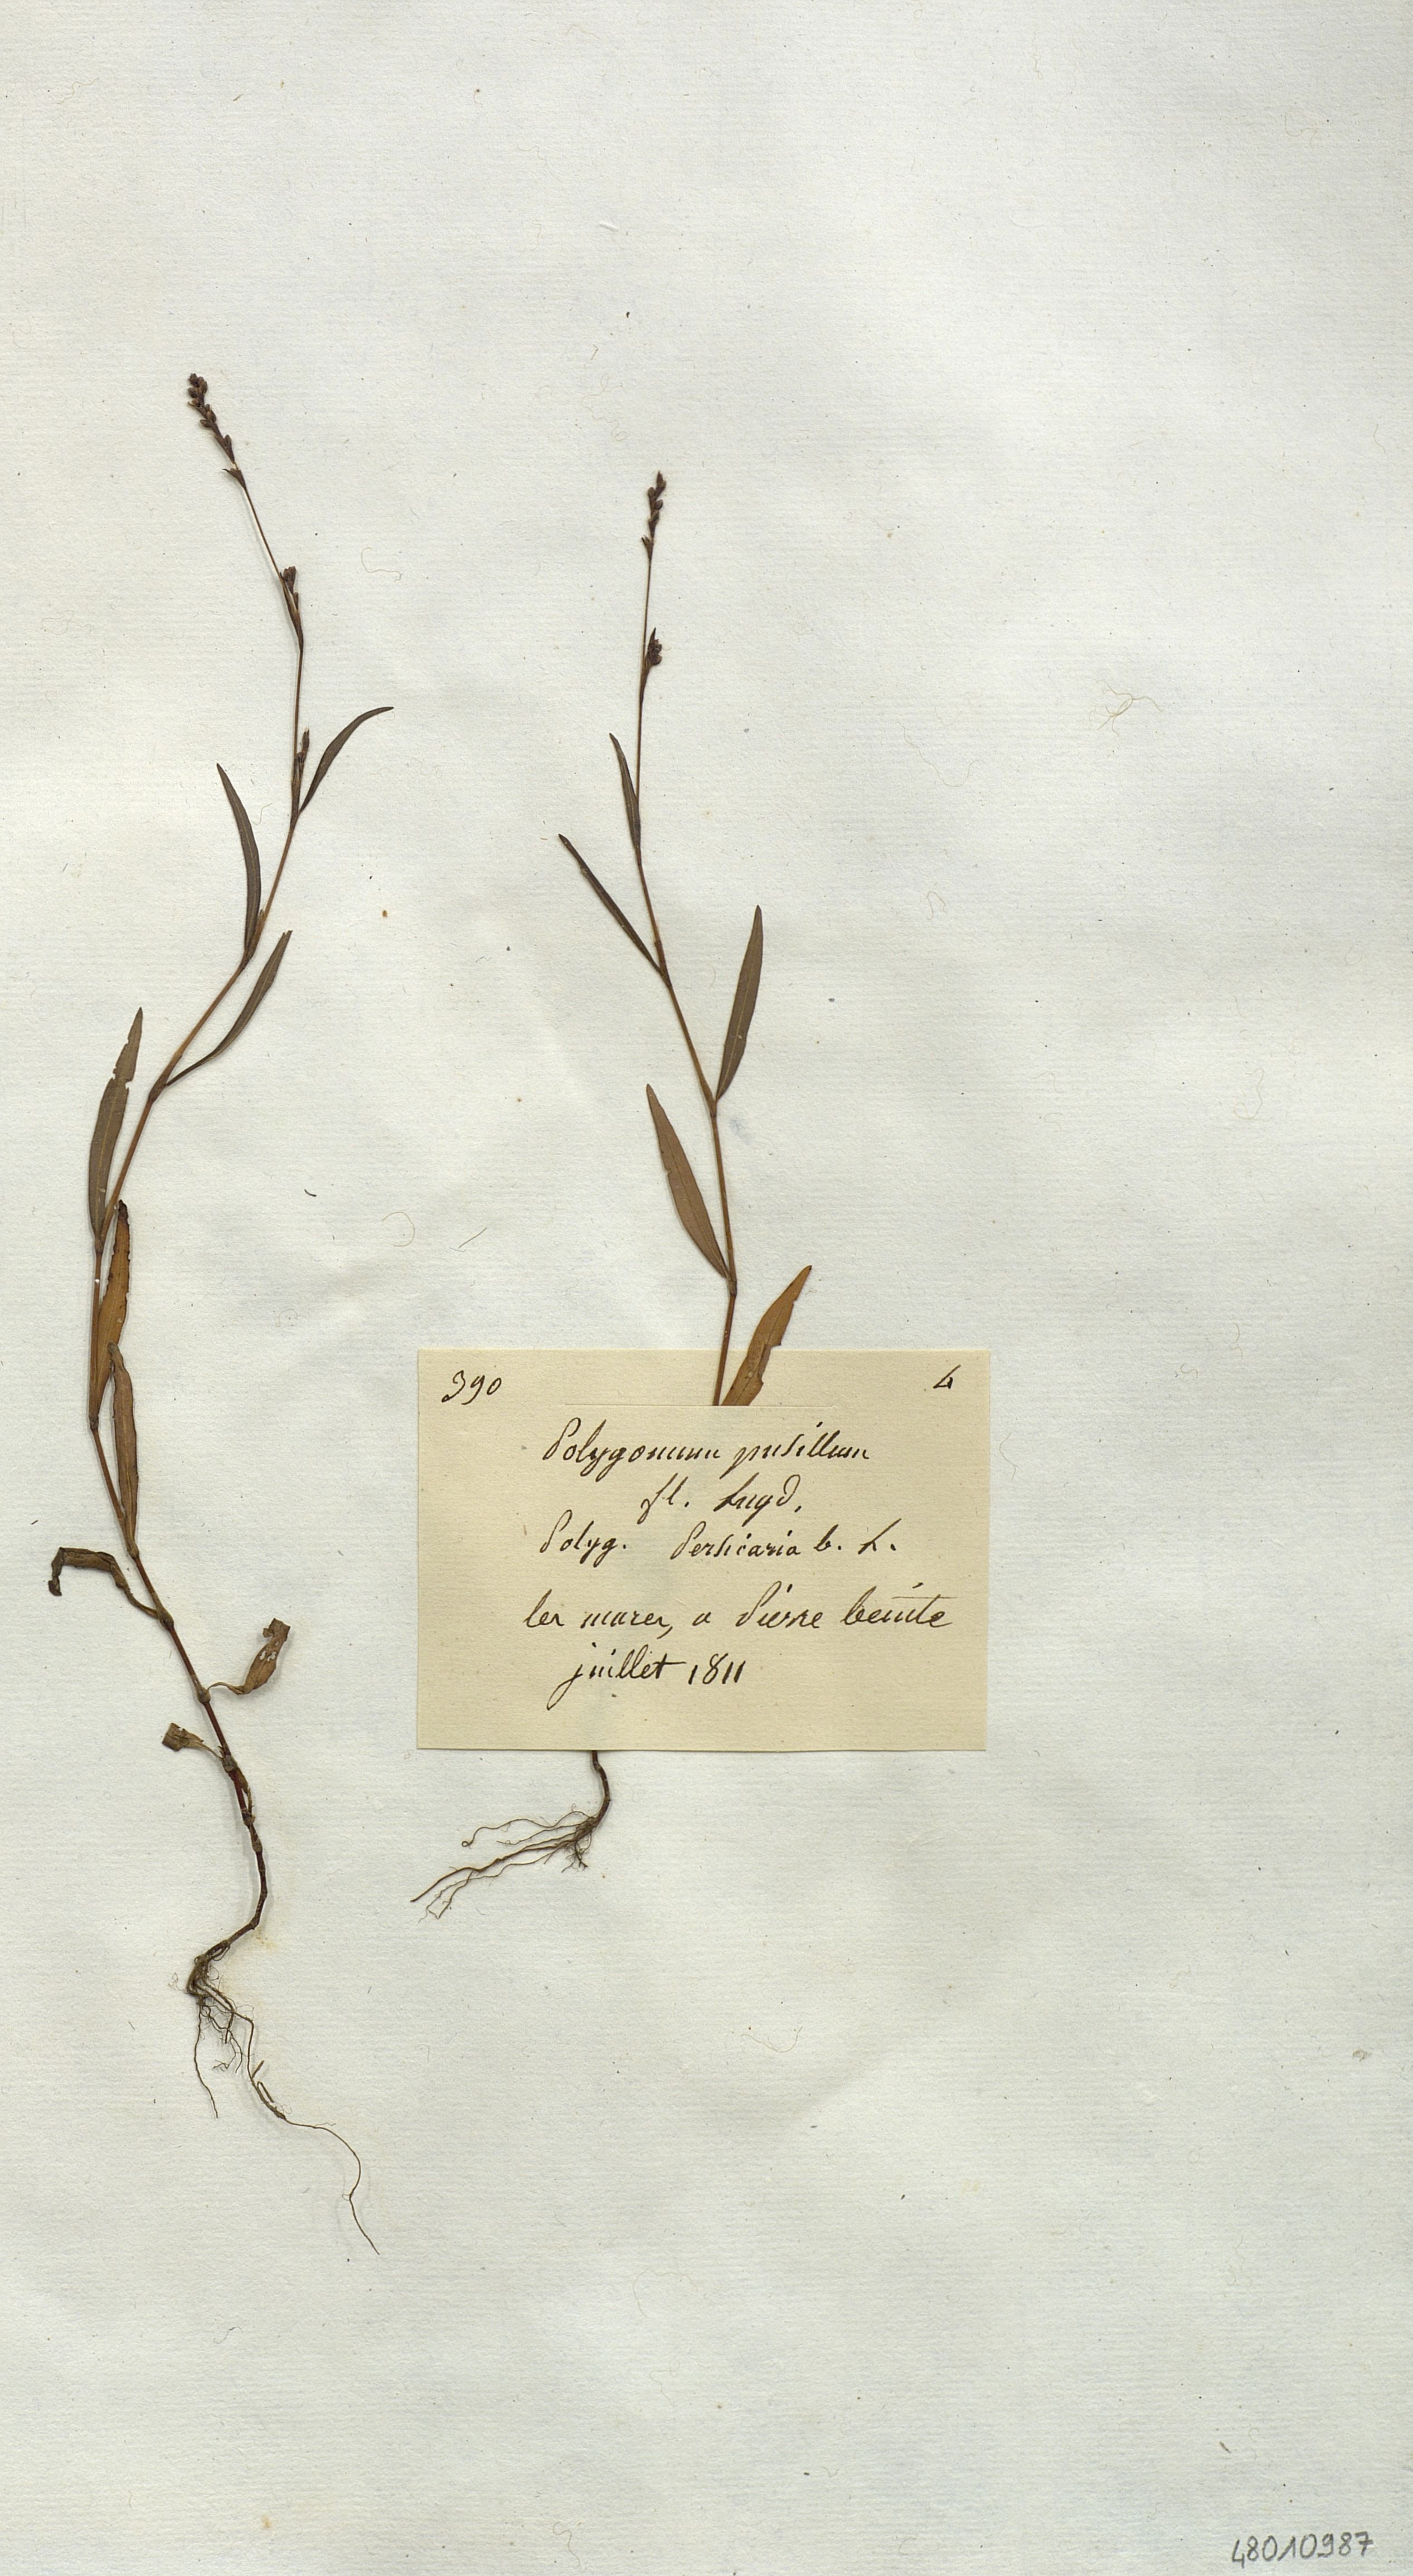 390 4
Polygonum pusillum
fl. Lugd.
Polyg. Persicaria b. L.
les mares, a Pierre benite
juillet 1811
48010987